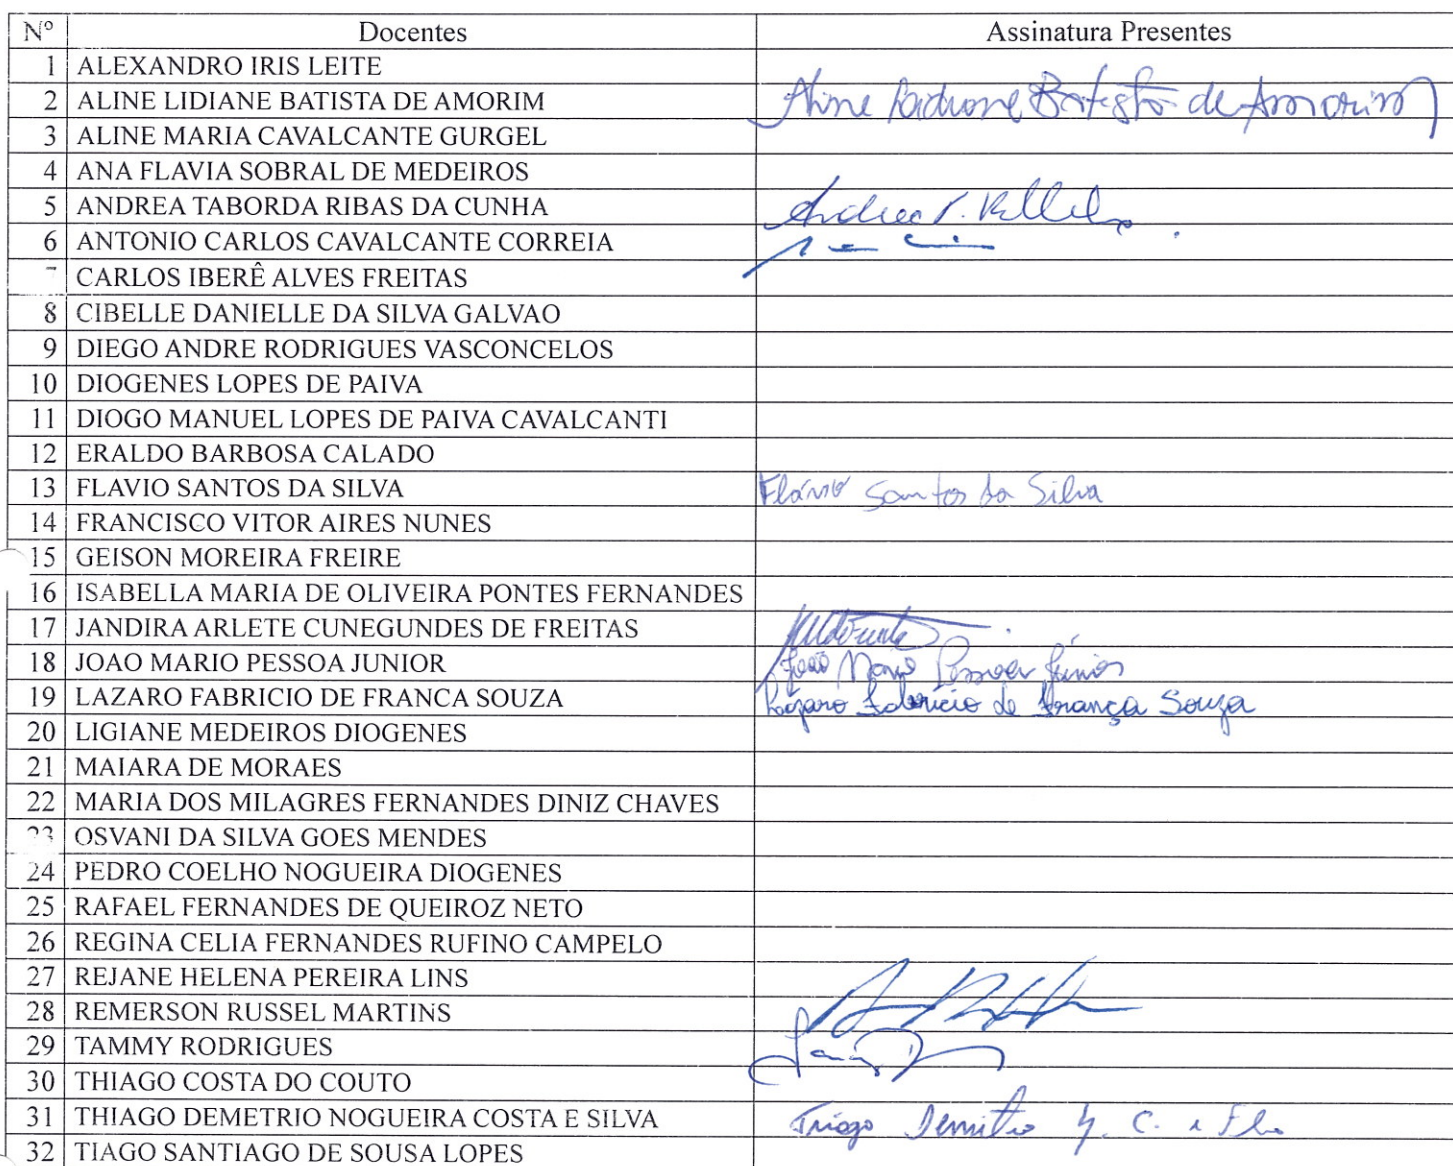 Nº Docentes Assinatura Presentes
1 ALEXANDRO IRIS LEITE
2 ALINE LIDIANE BATISTA DE AMORIM Aline Lidiane Batista de Amorim
3 ALINE MARIA CAVALCANTE GURGEL
4 ANA FLAVIA SOBRAL DE MEDEIROS
5 ANDREA TABORDA RIBAS DA CUNHA Andrea
6 ANTONIO CARLOS CAVALCANTE CORREIA
7 CARLOS IBERÊ ALVES FREITAS
8 CIBELLE DANIELLE DA SILVA GALVAO
9 DIEGO ANDRE RODRIGUES VASCONCELOS
10 DIOGENES LOPES DE PAIVA
11 DIOGO MANUEL LOPES DE PAIVA CAVALCANTI
12 ERALDO BARBOSA CALADO
13 FLAVIO SANTOS DA SILVA Flávio Santos da Silva
14 FRANCISCO VITOR AIRES NUNES
15 GEISON MOREIRA FREIRE
16 ISABELLA MARIA DE OLIVEIRA PONTES FERNANDES
17 JANDIRA ARLETE CUNEGUNDES DE FREITAS
18 JOAO MARIO PESSOA JUNIOR João Mário Pessoa Júnior
19 LAZARO FABRICIO DE FRANCA SOUZA Lázaro Fabrício de França Souza
20 LIGIANE MEDEIROS DIOGENES
21 MAIARA DE MORAES
22 MARIA DOS MILAGRES FERNANDES DINIZ CHAVES
23 OSVANI DA SILVA GOES MENDES
24 PEDRO COELHO NOGUEIRA DIOGENES
25 RAFAEL FERNANDES DE QUEIROZ NETO
26 REGINA CELIA FERNANDES RUFINO CAMPELO
27 REJANE HELENA PEREIRA LINS
28 REMERSON RUSSEL MARTINS
29 TAMMY RODRIGUES
30 THIAGO COSTA DO COUTO
31 THIAGO DEMETRIO NOGUEIRA COSTA E SILVA Thiago Demétrio N. C. e Silva
32 TIAGO SANTIAGO DE SOUSA LOPES